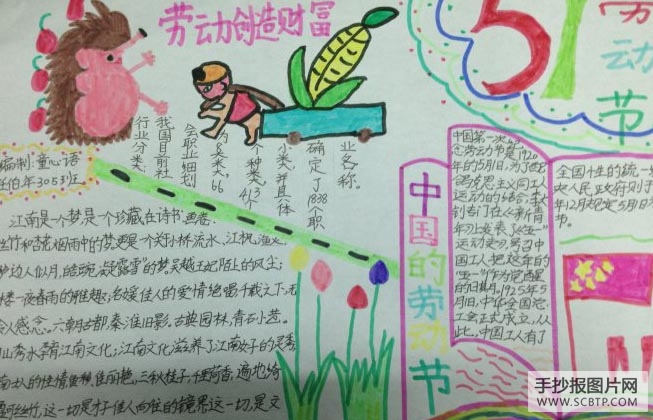 劳动创造财富
51
劳动节
编制:童心语
3053班
我国目前社
会职业细划
为8大类,66
个种类,413个
小类,并具体
确定了1838个职
业名称。
行业分类
中国的劳动节
中国第一次纪
念劳动节是1920
年的5月1日,为了
马克思主义同工人
运动的结合,
专门在《新青
年》上发表了“五一”
运动史》,号召中
国工人把这年的
“五一”作为觉醒
的日期。1925年5
月1日,中华全国总
工会正式成立,从
此,中国工人有了
全国性的统一
央人民政府则于
年12月规定5月1日
节。
江南是一个梦,是一个珍藏在诗书画卷
竹和杏花烟雨中的梦,
边人似月,皓腕凝霜雪”的梦,吴越王妃陌上的风尘;
楼一夜春雨的雅趣;名媛佳人的爱情绝唱千载之下,无
人感念。六朝古都,秦淮旧影。古典园林,青石小巷。
山秀水孕育江南文化;江南文化滋养了江南女子的灵秀,
南士人的性情
佳丽艳,三秋桂子,十里荷香,遍地绮
丝竹,这一切是才子佳人向往的境界,这一切,是文
手抄报图片网
WWW.SCBTP.COM